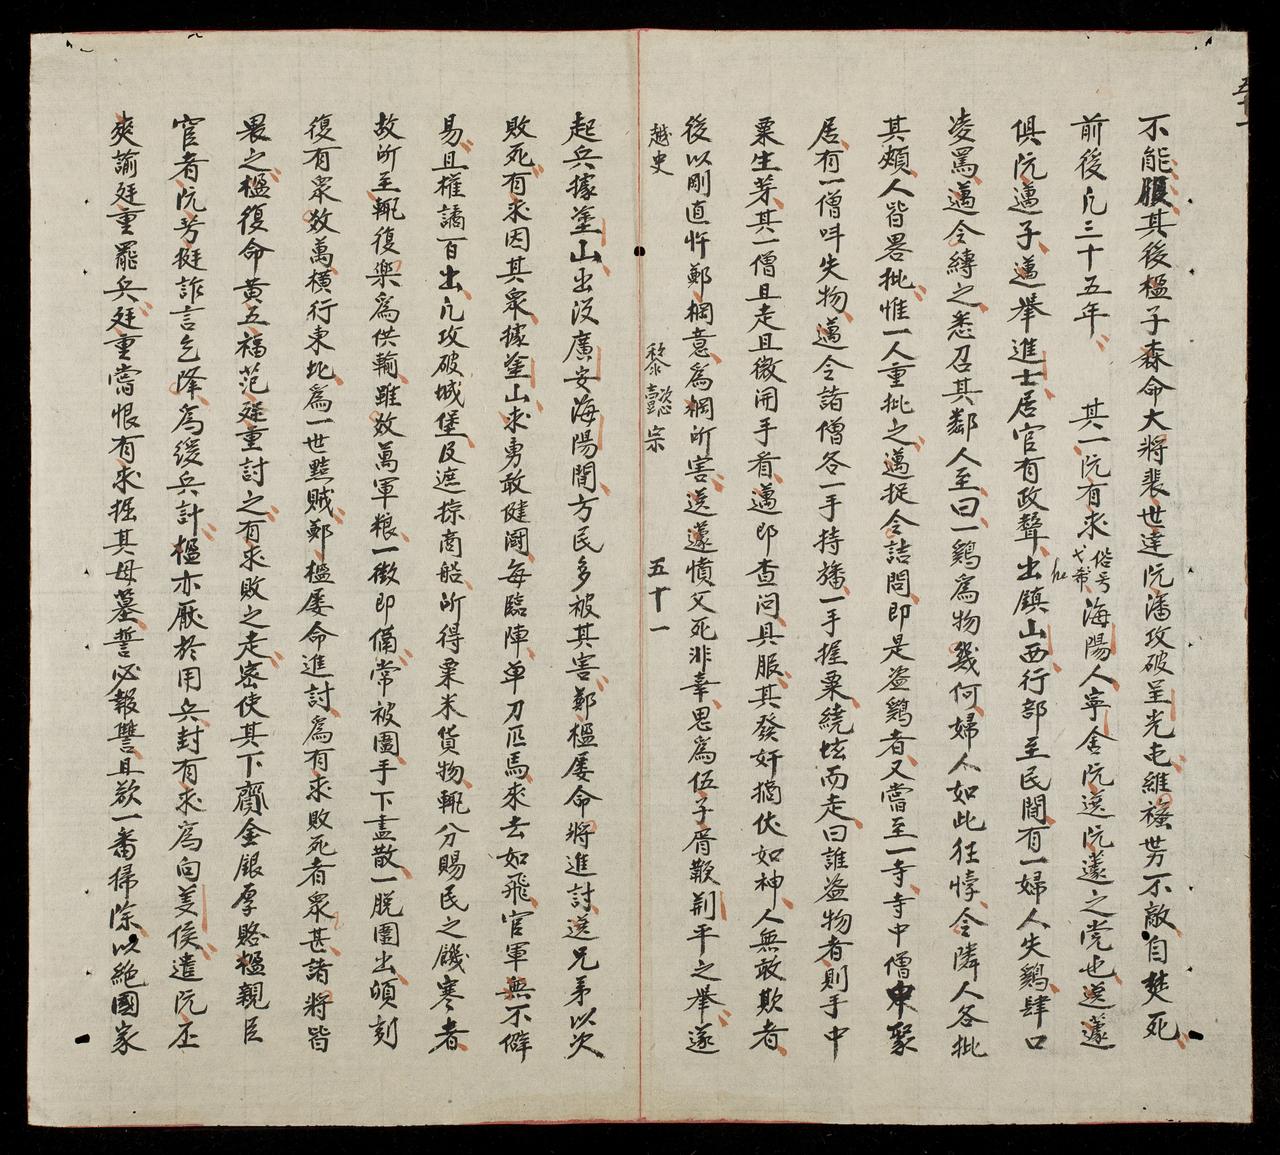 不能服其後楹子森命大將裴世達阮潘攻破呈光屯維𥛉勢不敵自焚死
前後凡三十五年 其一阮有求俗号𢧐𢂞海陽人寧舍阮遴阮蘧之党也遴蘧
俱阮邁子邁舉進士居官有政聲出鎮山西行部至民間有一婦人失鷄肆口
凌罵邁令縛之悉召其鄰人至曰一鷄為物幾何婦人如此狂悖令隣人各批
其頰人皆畧批惟一人重批之邁捉令詰問即是盜鷄者又嘗至一寺寺中僧聚
居有一僧呌失物邁令諸僧各一手持旛一手握粟繞坛而走曰誰盜物者則手中
粟生芽其一僧且走且微開手看邁即查问具服其發奸摘伏如神人無敢欺者
後以剛直忤鄭棡意為棡所害遴蘧憤父死非辜思為伍子胥鞭荊平之舉遂
越史 黎懿宗 五十一
起兵據塗山出沒廣安海陽間方民多被其害鄭楹屡命將進討遴兄弟以次
敗死有求因其眾據塗山求勇敢健鬪每臨陣单刀匹馬來去如飛官軍無不僻
易且權譎百出凡攻破城堡及遮掠商船所得粟米貨物輒分賜民之饑寒者
故所至輒復樂為供輸雖数萬軍粮一徵即備常被圍手下盡散一脫圍出頃刻
復有眾数萬横行東北為一世黠賊鄭楹屡命進討為有求敗死者眾甚諸將皆
畏之楹復命黄五福范廷重討之有求敗之走密使其下齎金銀厚賂楹親臣
官者阮芳挺詐言乞降為緩兵計楹亦厭於用兵封有求為向義侯遣阮丕
爽諭廷重罷兵廷重嘗恨有求掘其母墓誓必報讐且欲一番掃除以絶國家